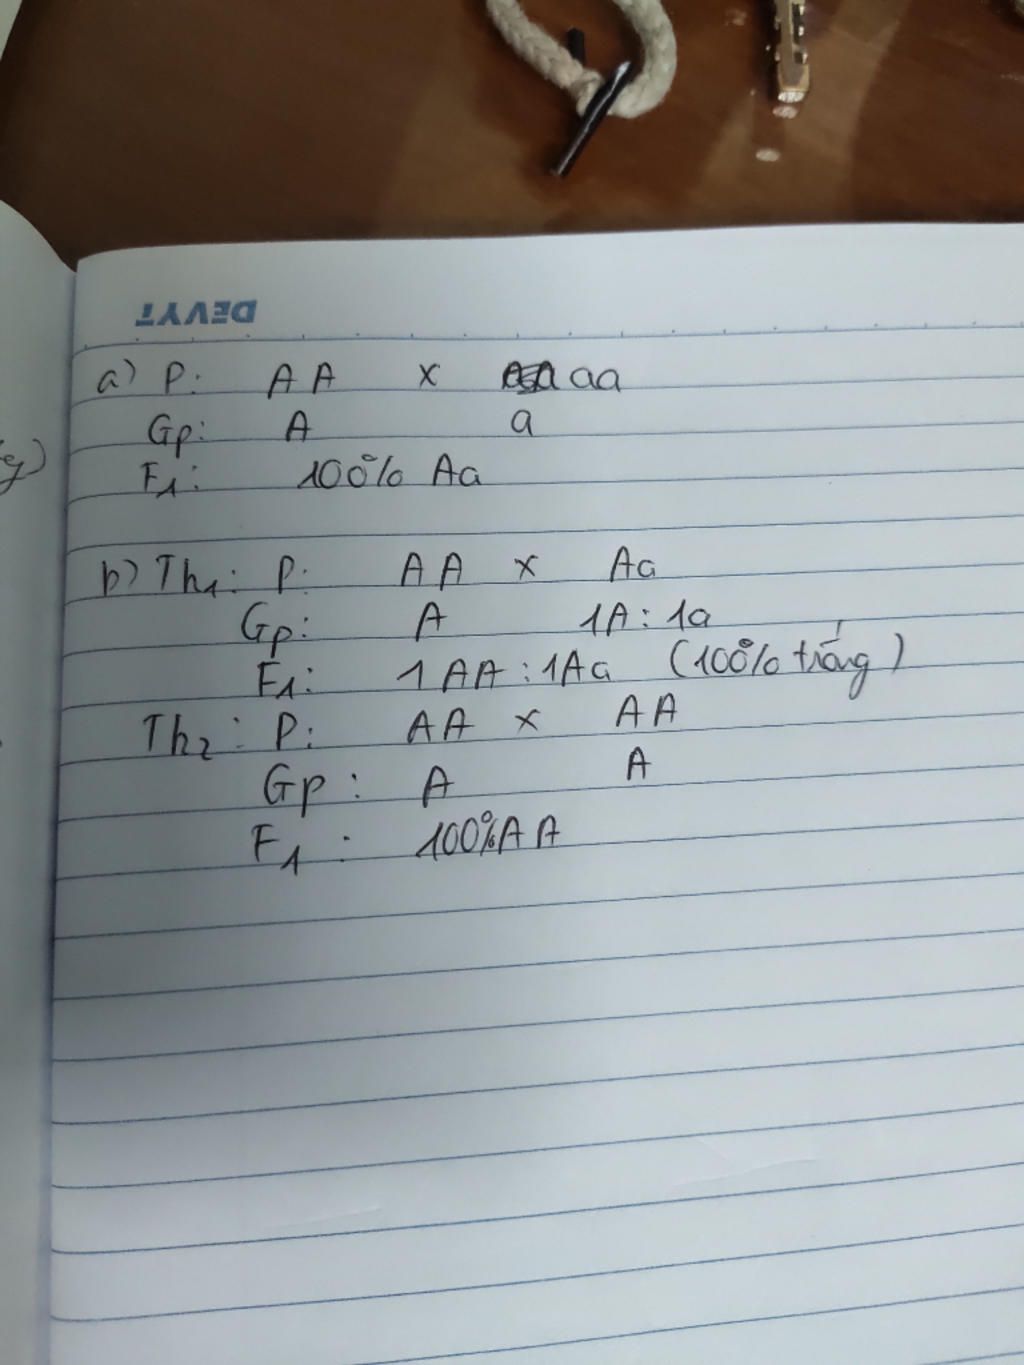 DEVYT
a) P: AA x aa
Gp: A a
F1: 100% Aa
b) Th1: P: AA x Aa
Gp: A 1A : 1a
F1: 1AA : 1Aa (100% trắng)
Th2: P: AA x AA
Gp: A A
F1: 100% AA